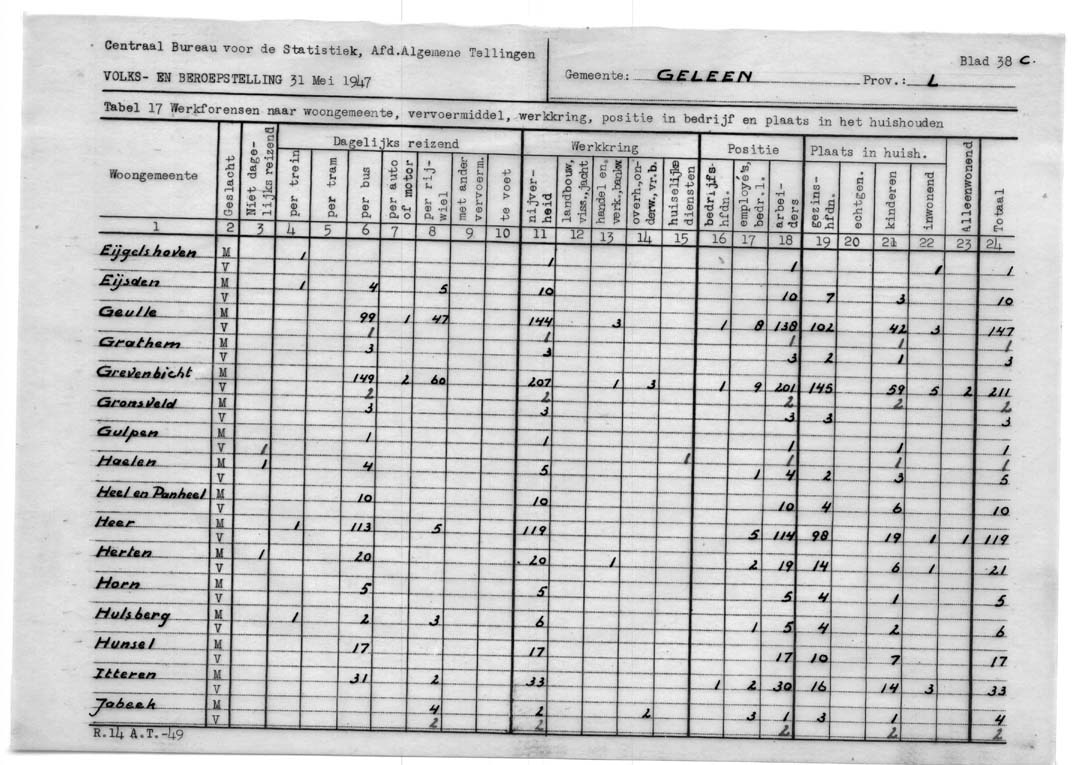 Centraal Bureau voor de Statistiek, Afd.Algemene Tellingen
VOLKS- EN BEROEPSTELLING 31 Mei 1947
Gemeente: GELEEN Prov.: L
Blad 38 C.
Tabel 17 Werkforensen naar woongemeente, vervoermiddel, werkkring, positie in bedrijf en plaats in het huishouden
Woongemeente
Geslacht
Niet dage-
lijks reizend
Dagelijks reizend
per trein
per tram
per bus
per auto
of motor
per rij-
wiel
met ander
vervoerm.
te voet
Werkkring
nijver-
heid
landbouw,
viss.,jacht
handel en.
verk.,bankw
overh.,on-
derw.,vr.b.
huiselijke
diensten
Positie
bedrijfs-
hfdn.
employé's,
bedr.l.
arbei-
ders
Plaats in huish.
gezins-
hfdn.
echtgen.
kinderen
inwonend
Alleenwonend
Totaal
1 2 3 4 5 6 7 8 9 10 11 12 13 14 15 16 17 18 19 20 21 22 23 24
Eijgelshoven M 1 1 1 1 1
V
Eijsden M 1 4 5 10 10 7 3 10
V
Geulle M 99 1 47 144 3 1 8 138 102 42 3 147
V 1 1 1 1 1
Grathem M 3 3 3 2 1 3
V
Grevenbicht M 149 2 60 207 1 3 1 9 201 145 59 5 2 211
V 2 2 2 2 2
Gronsveld M 3 3 3 3 3
V
Gulpen M 1 1 1 1 1
V 1 1 1 1 1
Haelen M 1 4 5 1 4 2 3 5
V
Heel en Panheel M 10 10 10 4 6 10
V
Heer M 1 113 5 119 5 114 98 19 1 1 119
V
Herten M 1 20 20 1 2 19 14 6 1 21
V
Horn M 5 5 5 4 1 5
V
Hulsberg M 1 2 3 6 1 5 4 2 6
V
Hunsel M 17 17 17 10 7 17
V
Itteren M 31 2 33 1 2 30 16 14 3 33
V
Jabeek M 4 2 2 3 1 3 1 4
V 2 2 2 2 2
R.14 A.T.-49